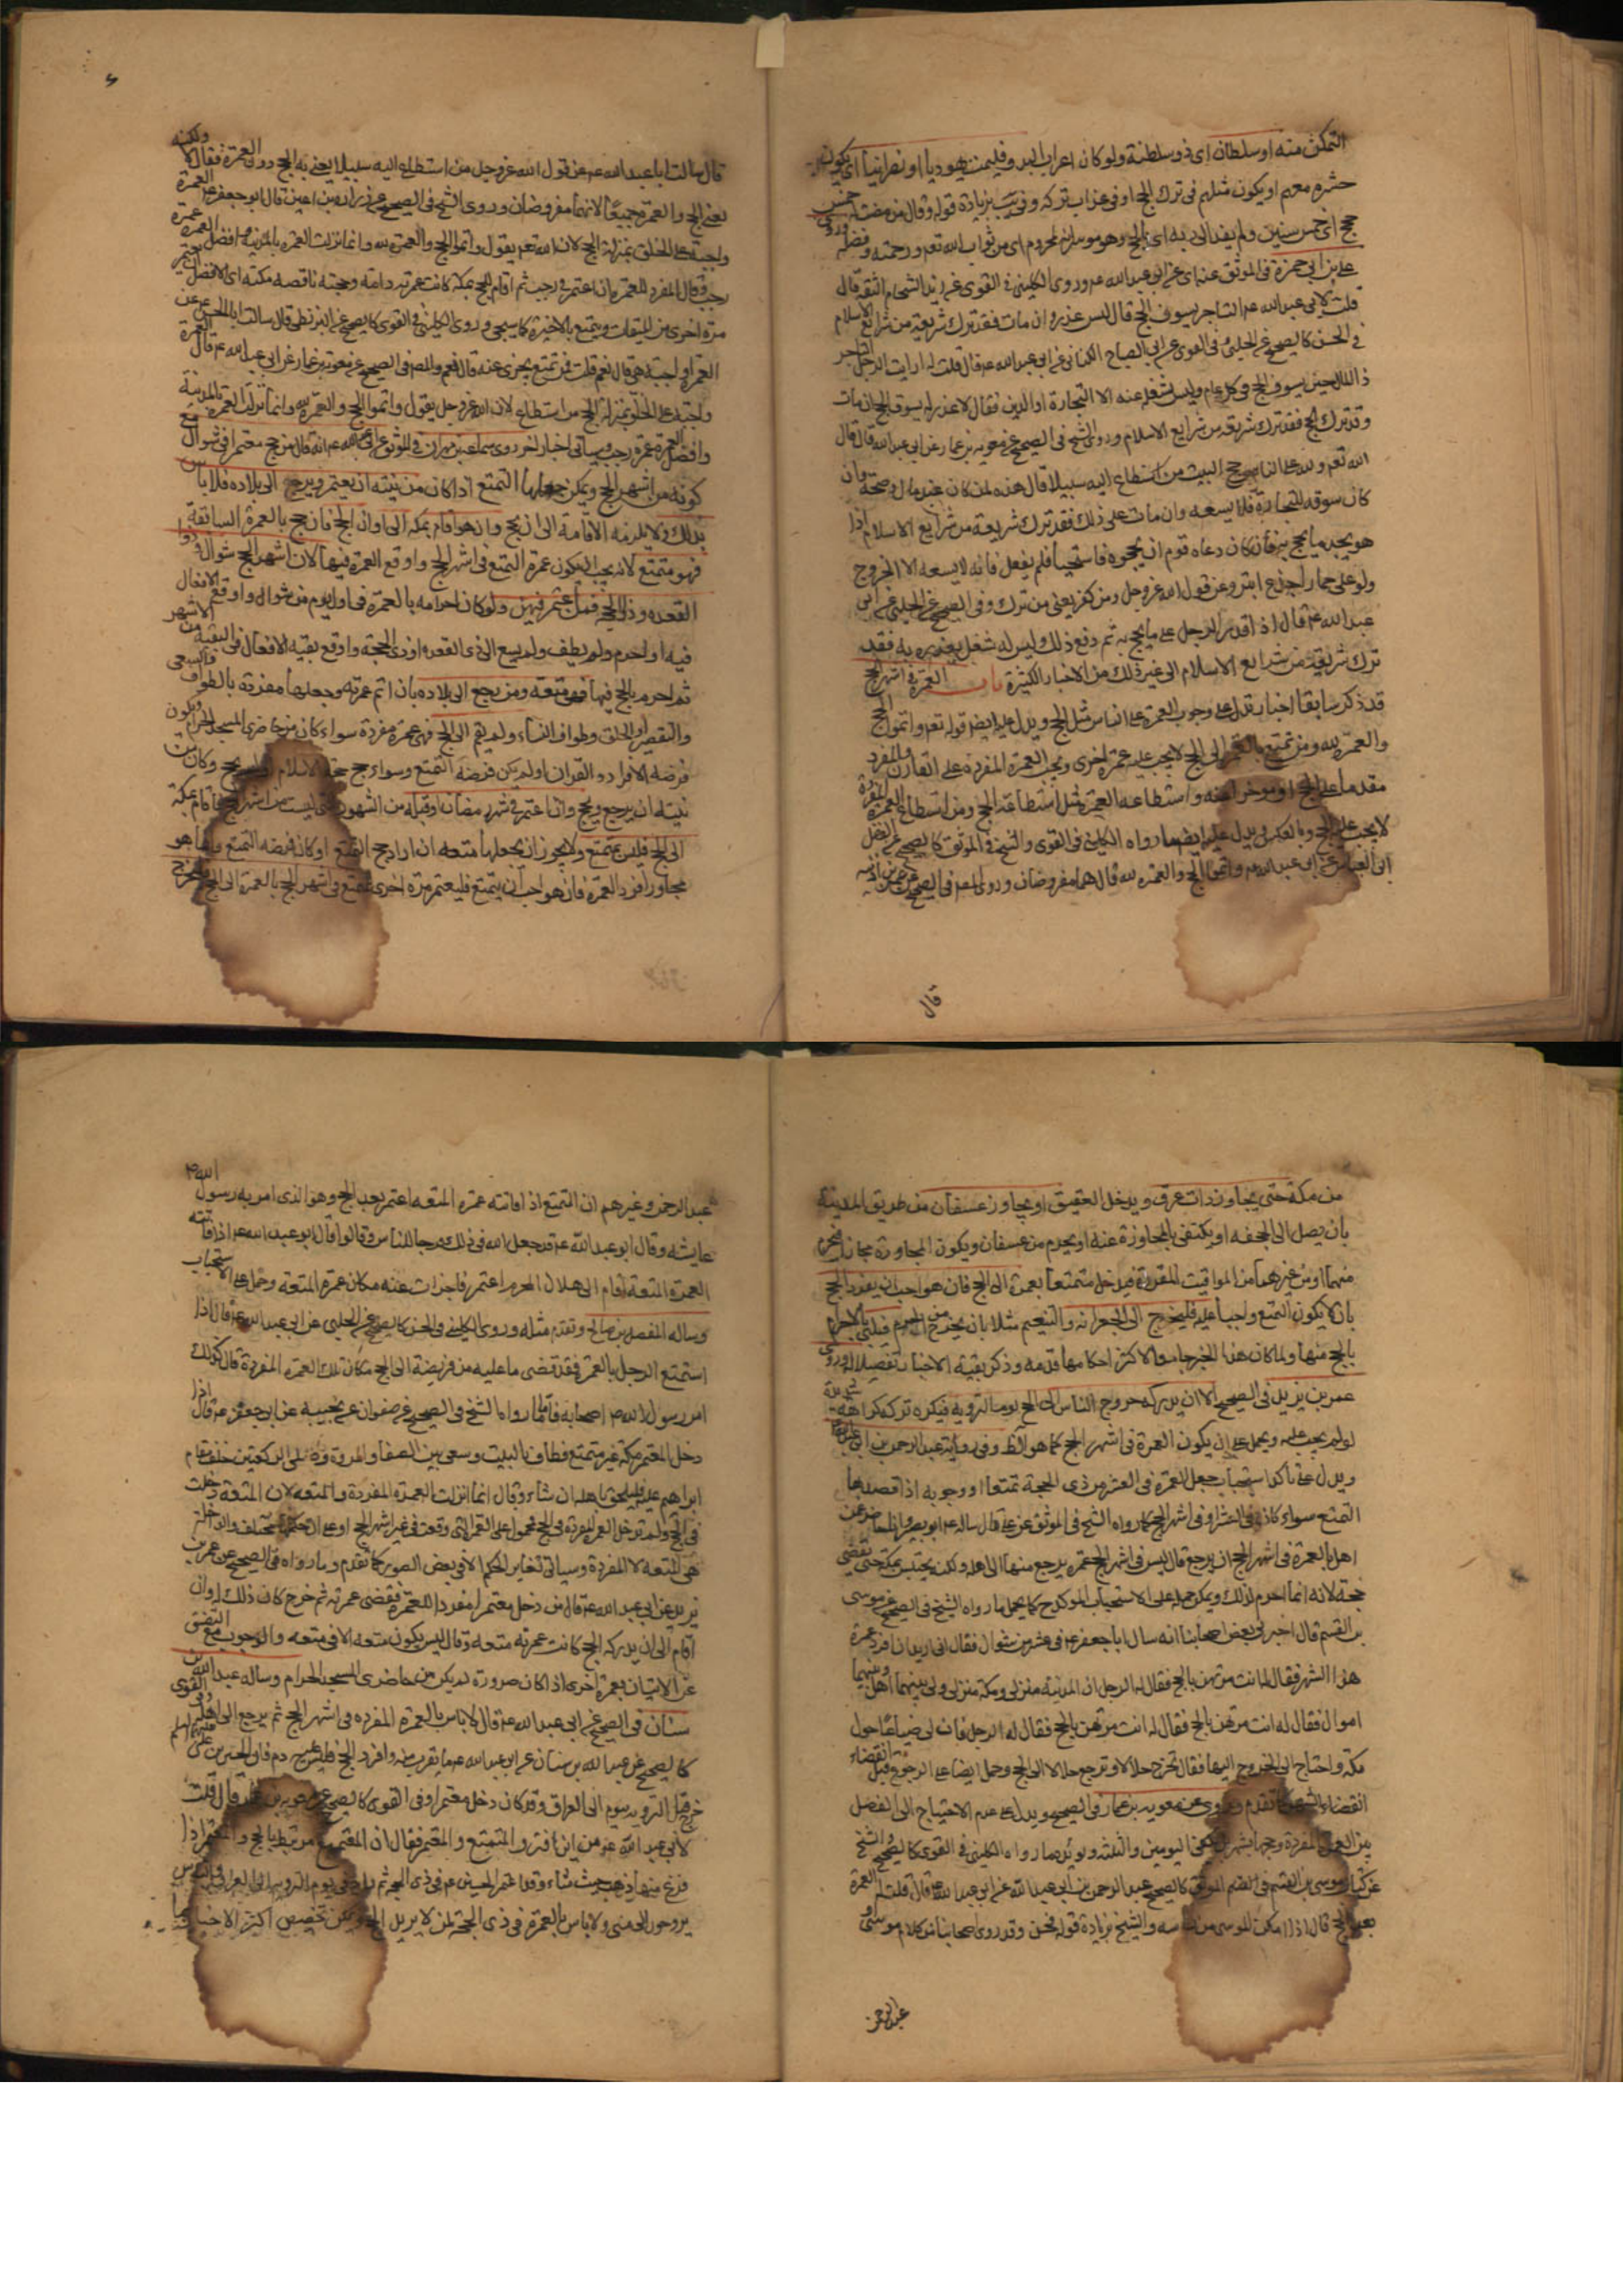 التمكن منه او سلطان اى ذو سلطنة ولو كان اعراب البدو فليمت يهوديا او نصرانيا اى يكون
حشره معهم او يكون مثلهم فى ترك الحج او فى عذاب تركه وفى يب بزيادة قوله وقال من مضت له خمس
حجج اى خمس سنين ولم يفد الى ربه اى بالحج وهو موسر انه لمحروم اى من ثواب الله تعه ورحمته وفضله وروى
على بن ابى حمزة فى الموثق عنه اى عن ابى عبد الله عه وروى الكلينى فى القوى عن زيد الشحام الثقة قال
قلت لابى عبد الله عه التاجر يسوف الحج قال ليس عذر وان مات فقد ترك شريعة من شرايع الاسلام
فى الحسن كالصحيح عن الحلبى وفى القوى عن ابى الصباح الكنانى عن ابى عبد الله عه قال قلت له ارايت الرجل التاجر
ذا المال حين يسوف الحج فى كل عام وليس يشغله عنه الا التجارة او الدين فقال لا عذر له يسوف الحج ان مات
وقد ترك الحج فقد ترك شريعة من شرايع الاسلام وروى الشيخ فى الصحيح عن معوية بن عمار عن ابى عبد الله قال قال
الله تعه ولله على الناس حج البيت من استطاع اليه سبيلا قال هذه لمن كان عنده مال وصحة وان
كان سوقه للتجارة فلا يسعه وان مات على ذلك فقد ترك شريعة من شرايع الاسلام اذا
هو يجد ما يحج به فان كان دعاه قوم ان يحجوه فاستحيا فلم يفعل فانه لا يسعه الا الخروج
ولو على حمار اجدع ابتر وعن قول الله عز وجل ومن كفر يعنى من ترك وفى الصحيح عن الحلبى عن ابى
عبد الله عه قال اذا قدر الرجل على ما يحج به ثم دفع ذلك وليس له شغل يعذره به فقد
ترك شريعة من شرايع الاسلام الى غير ذلك من الاخبار الكثيرة باب العمرة فى اشهر الحج
قد ذكر سابقا اخبار تدل على وجوب العمرة على الناس مثل الحج ويدل عليه ايضا قوله تعه واتموا الحج
والعمرة لله ومن تمتع بالعمرة الى الحج لا يجب عليه عمرة اخرى ويجب العمرة المفردة على القارن والمفرد
مقدما على الحج او موخرا عنه واستطاعة العمرة مثل استطاعة الحج ومن استطاع العمرة المفردة
لا يجب عليه الحج وبالعكس ويدل عليه ايضا ما رواه الكلينى فى القوى والشيخ فى الموثق كالصحيح عن الفضل
ابى العباس عن ابى عبد الله عه واتموا الحج والعمرة لله قال هما مفروضان وروى المصه فى الصحيح عن عمر بن اذينه
قال
قال سالت ابا عبد الله عه عن قول الله عز وجل من استطاع اليه سبيلا يعنى به الحج دون العمرة فقال لا ولكنه
يعنى الحج والعمرة جميعا لانهما مفروضان وروى الشيخ فى الصحيح عن زرارة بن اعين قال ابو جعفر عه العمرة
واجبة على الخلق بمنزلة الحج لان الله تعه يقول واتموا الحج والعمرة لله وانما نزلت العمرة بالمدينة وافضل العمرة عمرة
رجب وقال المفرد للعمرة ان اعتمر فى رجب ثم اقام للحج بمكة كانت عمرته تامة وحجته ناقصة مكية اى الافضل ان يعتمر
مرة اخرى من الميقات ويتمتع بالاخيرة كما سيجى وروى الكلينى فى القوى كالصحيح عن البزنطى قال سالت ابا الحسن عه عن
العمرة اواجبة هى قال نعم قلت فمن تمتع يجزى عنه قال نعم والمصه فى الصحيح عن معوية بن عمار عن ابى عبد الله عه قال العمرة
واجبة على الخلق بمنزلة الحج من استطاع لان الله عز وجل يقول واتموا الحج والعمرة لله وانما نزلت العمرة بالمدينة
وافضل العمرة عمرة رجب وسياتى اخبار اخر روى سماعة بن مهران فى الموثق عن ابى عبد الله عه انه قال من حج معتمرا فى شوال مع
كونه من اشهر الحج ويمكن جعلها التمتع اذا كان من نيته ان يعتمر ويرجع الى بلاده فلا باس
بذلك ولا يلزمه الاقامة الى ان يحج وان هو اقام بمكة الى اوان الحج فان حج بالعمرة السابقة
فهو متمتع لانه يجب ان يكون عمرة التمتع فى اشهر الحج واوقع العمرة فيها لان اشهر الحج شوال وذوا
القعده وذو الحجة فمن اعتمر فيهن ولو كان احرامه بالعمرة فى اول يوم من شوال واوقع الافعال
فيه او احرم ولم يطف ولم يسع الى ذى القعده او ذى الحجة واوقع بقيه الافعال فى البقية من الاشهر
ثم احرم بالحج فيها فهى متعة ومن رجع الى بلاده بان اتم عمرته وجعلها مفردة بالطواف والسعى
والتقصير او الحلق وطواف النساء ولم يقم الى الحج فهى عمرة مفردة سواء كان من حاضرى المسجد الحرام ويكون
فرضه الافراد والقران او لم يكن فرضه التمتع وسواء حج حجة الاسلام او لم يحج وكان من
نيته ان يرجع ويحج وان اعتمر فى شهر رمضان او قبله من الشهور التى ليست من اشهر الحج واقام بمكة
الى الحج فليس بمتمتع ولا يجوز ان يجعلها متعه ان اراد حج التمتع او كان فرضه التمتع وانما هو
مجاور افرد العمرة فان هو احب ان يتمتع فليعتمر مرة اخرى يتمتع فى اشهر الحج بالعمرة الى الحج فيخرج
من مكة حتى يجاوز ذات عرق ويدخل العقيق او يجاوز عسفان من طريق المدينة
بان يصل الى الجحفه او يكتفى بالمجاوزة عنه او يحرم من عسفان ويكون المجاوزة مجازا فيحرم
منهما او من غيرهما من المواقيت المقررة فيدخل متمتعا بعمرة الى الحج فان هو احب ان يفرد الحج
بان لا يكون التمتع واجبا عليه فليخرج الى الجعرانه والتنعيم مثلا بان يخرج من الحرم فيلبى بالاحرام
بالحج منها ولما كان هذا الخبر جامعا لاكثر احكامها قدمه وذكر بقية الاخبار تفصيلا له وروى
عمر بن يزيد فى الصحيح الا ان يدركه خروج الناس الى الحج يوم التروية فيكره تركه كراهة شديدة
لو لم يجب عليه ويحمل على ان يكون العمرة فى اشهر الحج كما هو الظ وفى رواية عبد الرحمن بن ابى عبد الله
ويدل على تاكد استحباب جعل العمرة فى العشر من ذى الحجة تمتعا او وجوبه اذا قصد بها
التمتع سواء كان فى العشر او فى اشهر الحج كما رواه الشيخ فى الموثق عنه عه قال ساله ابو بصير وانا حاضر عن
اهل بالعمرة فى اشهر الحج ان يرجع قال ليس فى اشهر الحج عمرة يرجع منها الى اهله ولكنه يحتبس بمكة حتى يقضى
حجه لانه انما احرم لذلك ويمكن حمله على الاستحباب الموكد ح كما يحمل ما رواه الشيخ فى الصحيح عن موسى
بن القسم قال اخبرنى بعض اصحابنا انه سال ابا جعفر عه فى عشر من شوال فقال انى اريد ان افرد عمرة
هذا الشهر فقال له انت مرتهن بالحج فقال له الرجل ان المدينة منزلى ومكة منزلى ولى بينهما اهل وبينهما
اموال فقال له انت مرتهن بالحج فقال له الرجل فان لى ضياعا حول
مكة واحتاج الى الخروج اليها فقال تخرج حلالا وترجع حلالا الى الحج وحمل ايضا على الرجوع قبل انقضاء
انقضاء الشهر كما تقدم وروى عن معوية بن عمار فى الصحيح ويدل على عدم الاحتياج الى الفصل
بين العمرة المفردة وحجها بشهر بل يكفى اليومين والثلثة ويؤيده ما رواه الكلينى فى القوى كالصحيح والشيخ
عن كتاب موسى بن القسم فى الضم الموثق كالصحيح عبد الرحمن بن ابى عبد الله عن ابى عبد الله عه قال قلت له العمرة
بعد الحج قال اذا امكن الموسى من راسه والشيخ بزيادة قوله فحسن وقد روى اصحابنا من كلام موسى و
عبد الرحمن
عبد الرحمن وغيرهم ان التمتع اذا فاتته عمرة المتعه اعتمر بعد الحج وهو الذى امر به رسول الله ص
عايشه وقال ابو عبد الله عه قد جعل الله فى ذلك فرجا للناس وقالوا قال ابو عبد الله عه اذا فاتته
العمرة المتعة اقام الى هلال المحرم اعتمر فاجزات عنه مكان عمرة المتعه وحمل على الاستحباب
وساله المفضل بن صالح وتقدم مثله وروى الكلينى فى الحسن كالصحيح عن الحلبى عن ابى عبد الله عه قال اذا
استمتع الرجل بالعمرة فقد قضى ما عليه من فريضة الى الحج مكان تلك العمرة المفردة قال كذلك
امر رسول الله ص اصحابه فاما ما رواه الشيخ فى الصحيح عن صفوان عن نجيبة عن ابى جعفر عه قال اذا
دخل المعتمر مكة غير متمتع فطاف بالبيت وسعى بين الصفا والمروة وصلى الركعتين خلف مقام
ابراهيم عليه فليلحق باهله ان شاء وقال انما انزلت العمرة المفردة والمتعه لان المتعة دخلت
فى الحج ولم تدخل العمرة المفردة فى الحج فمحمول على العمرة التى وقعت فى غير اشهر الحج او على ان حكمها مختلف والداخلة
هى المتعه لا المفردة وسياتى تغاير الحكم الا فى بعض الصور كما تقدم وما رواه فى الصحيح عن عمر بن
يزيد عن ابى عبد الله عه قال من دخل معتمرا مفردا للعمرة فقضى عمرته ثم خرج كان ذلك له وان
اقام الى ان يدركه الحج كانت عمرته متعه وقال ليس يكون متعه الا فى متعه والوجوب مع التفق
عن الاتيان بعمرة اخرى اذا كان صرورة لم يكن من حاضرى المسجد الحرام وساله عبد الله بن
سنان فى الصحيح عن ابى عبد الله عه قال لا باس بالعمرة المفرده فى اشهر الحج ثم يرجع الى اهله وفى القوى
كالصحيح عن عبد الله بن سنان عن ابى عبد الله عه ما يقرب منه وافرد الحج فليس عليه دم فان الحسين بن على
خرج قبل التروية بيوم الى العراق وقد كان دخل معتمرا وفى القوى كالصحيح عن معوية بن عمار قال قلت
لابى عبد الله عه من اين افترق المتمتع والمعتمر فقال ان المتمتع مرتبط بالحج والمعتمر اذا
فرغ منها ذهب حيث شاء وقد اعتمر الحسين عه فى ذى الحجة ثم راح فى يوم التروية الى العراق والناس
يروحون الى منى ولا باس بالعمرة فى ذى الحجة لمن لا يريد الحج ويمكن تخصيص اكثر الاخبار